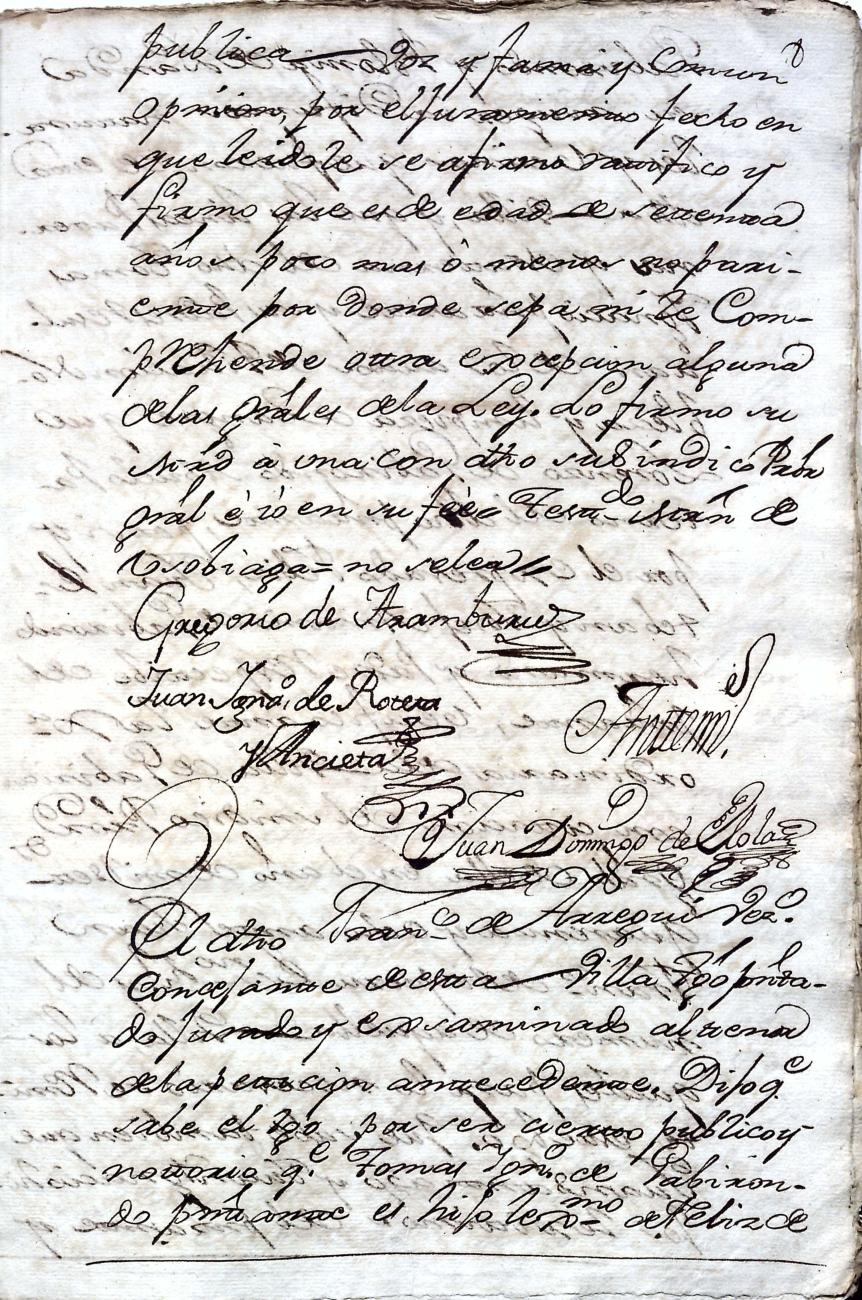 publica voz y fama y Comun
opinion, por el Juramento fecho en
que leidole se afirmo ratifico y
firmo que es de edad de settenta
años poco mas ô menos no pari-
ente por donde sepa ni le Com-
prehende ottra excepcion alguna
delas grãles dela Ley. Lo firmo su
mrd â una con dho su síndico Prõr
grãl è ió en su feè Testdo
de
Usobiaga = no se lea
Gregorio de Aramburu
Juan Ignº. de Roteta
y Ancieta
Antemi
Juan Domingo de Olola
El dho Franco de Arregui Vezº.
Concejante de esta Villa tgo pñta-
do Jurado y exsaminado al tenor
dela peticion antecedente. Dijo qe
sabe el tgo por ser ciertto publico y
nottorio qe. Tomas Ignº. de Gabiron-
do pñtante es hijo lexmo de Feliz de